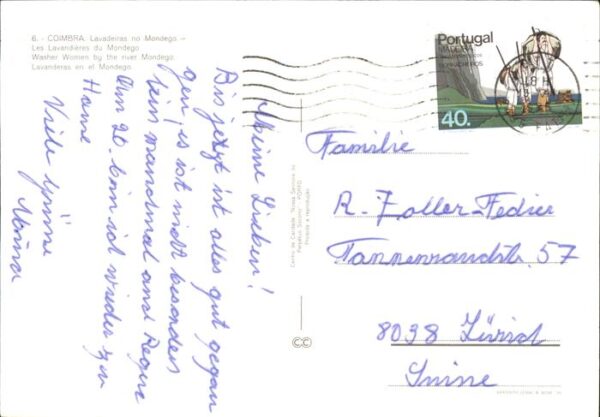 6. - COIMBRA. Lavadeiras no Mondego -
Les Lavandières du Mondego
Washer Women by the river Mondego.
Lavanderas en el Mondego.
Meine Lieben!
Bis jetzt ist alles gut gegan
gen, es ist nicht besonders
manchmal
Am 20. bin ich wieder zu
Hause
Viele Grüsse
Portugal
MADEIRA
40.
Familie
R. Zoller-Federer
57
8038 Zürich
Suisse
CC